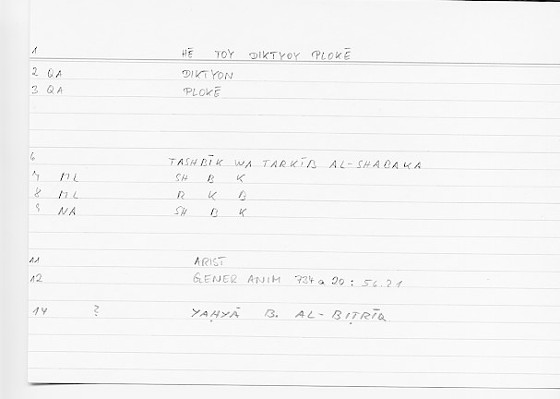 1 HĒ TOY DIKTYOY PLOKĒ
2 QA DIKTYON
3 QA PLOKĒ
6 TASHBĪK WA TARKĪB AL-SHABAKA
7 ML SH B K
8 ML R K B
9 NA SH B K
11 ARIST
12 GENER ANIM 734 a 20 : 56.21
14 ? YAḤYĀ B. AL-BIṬRĪQ